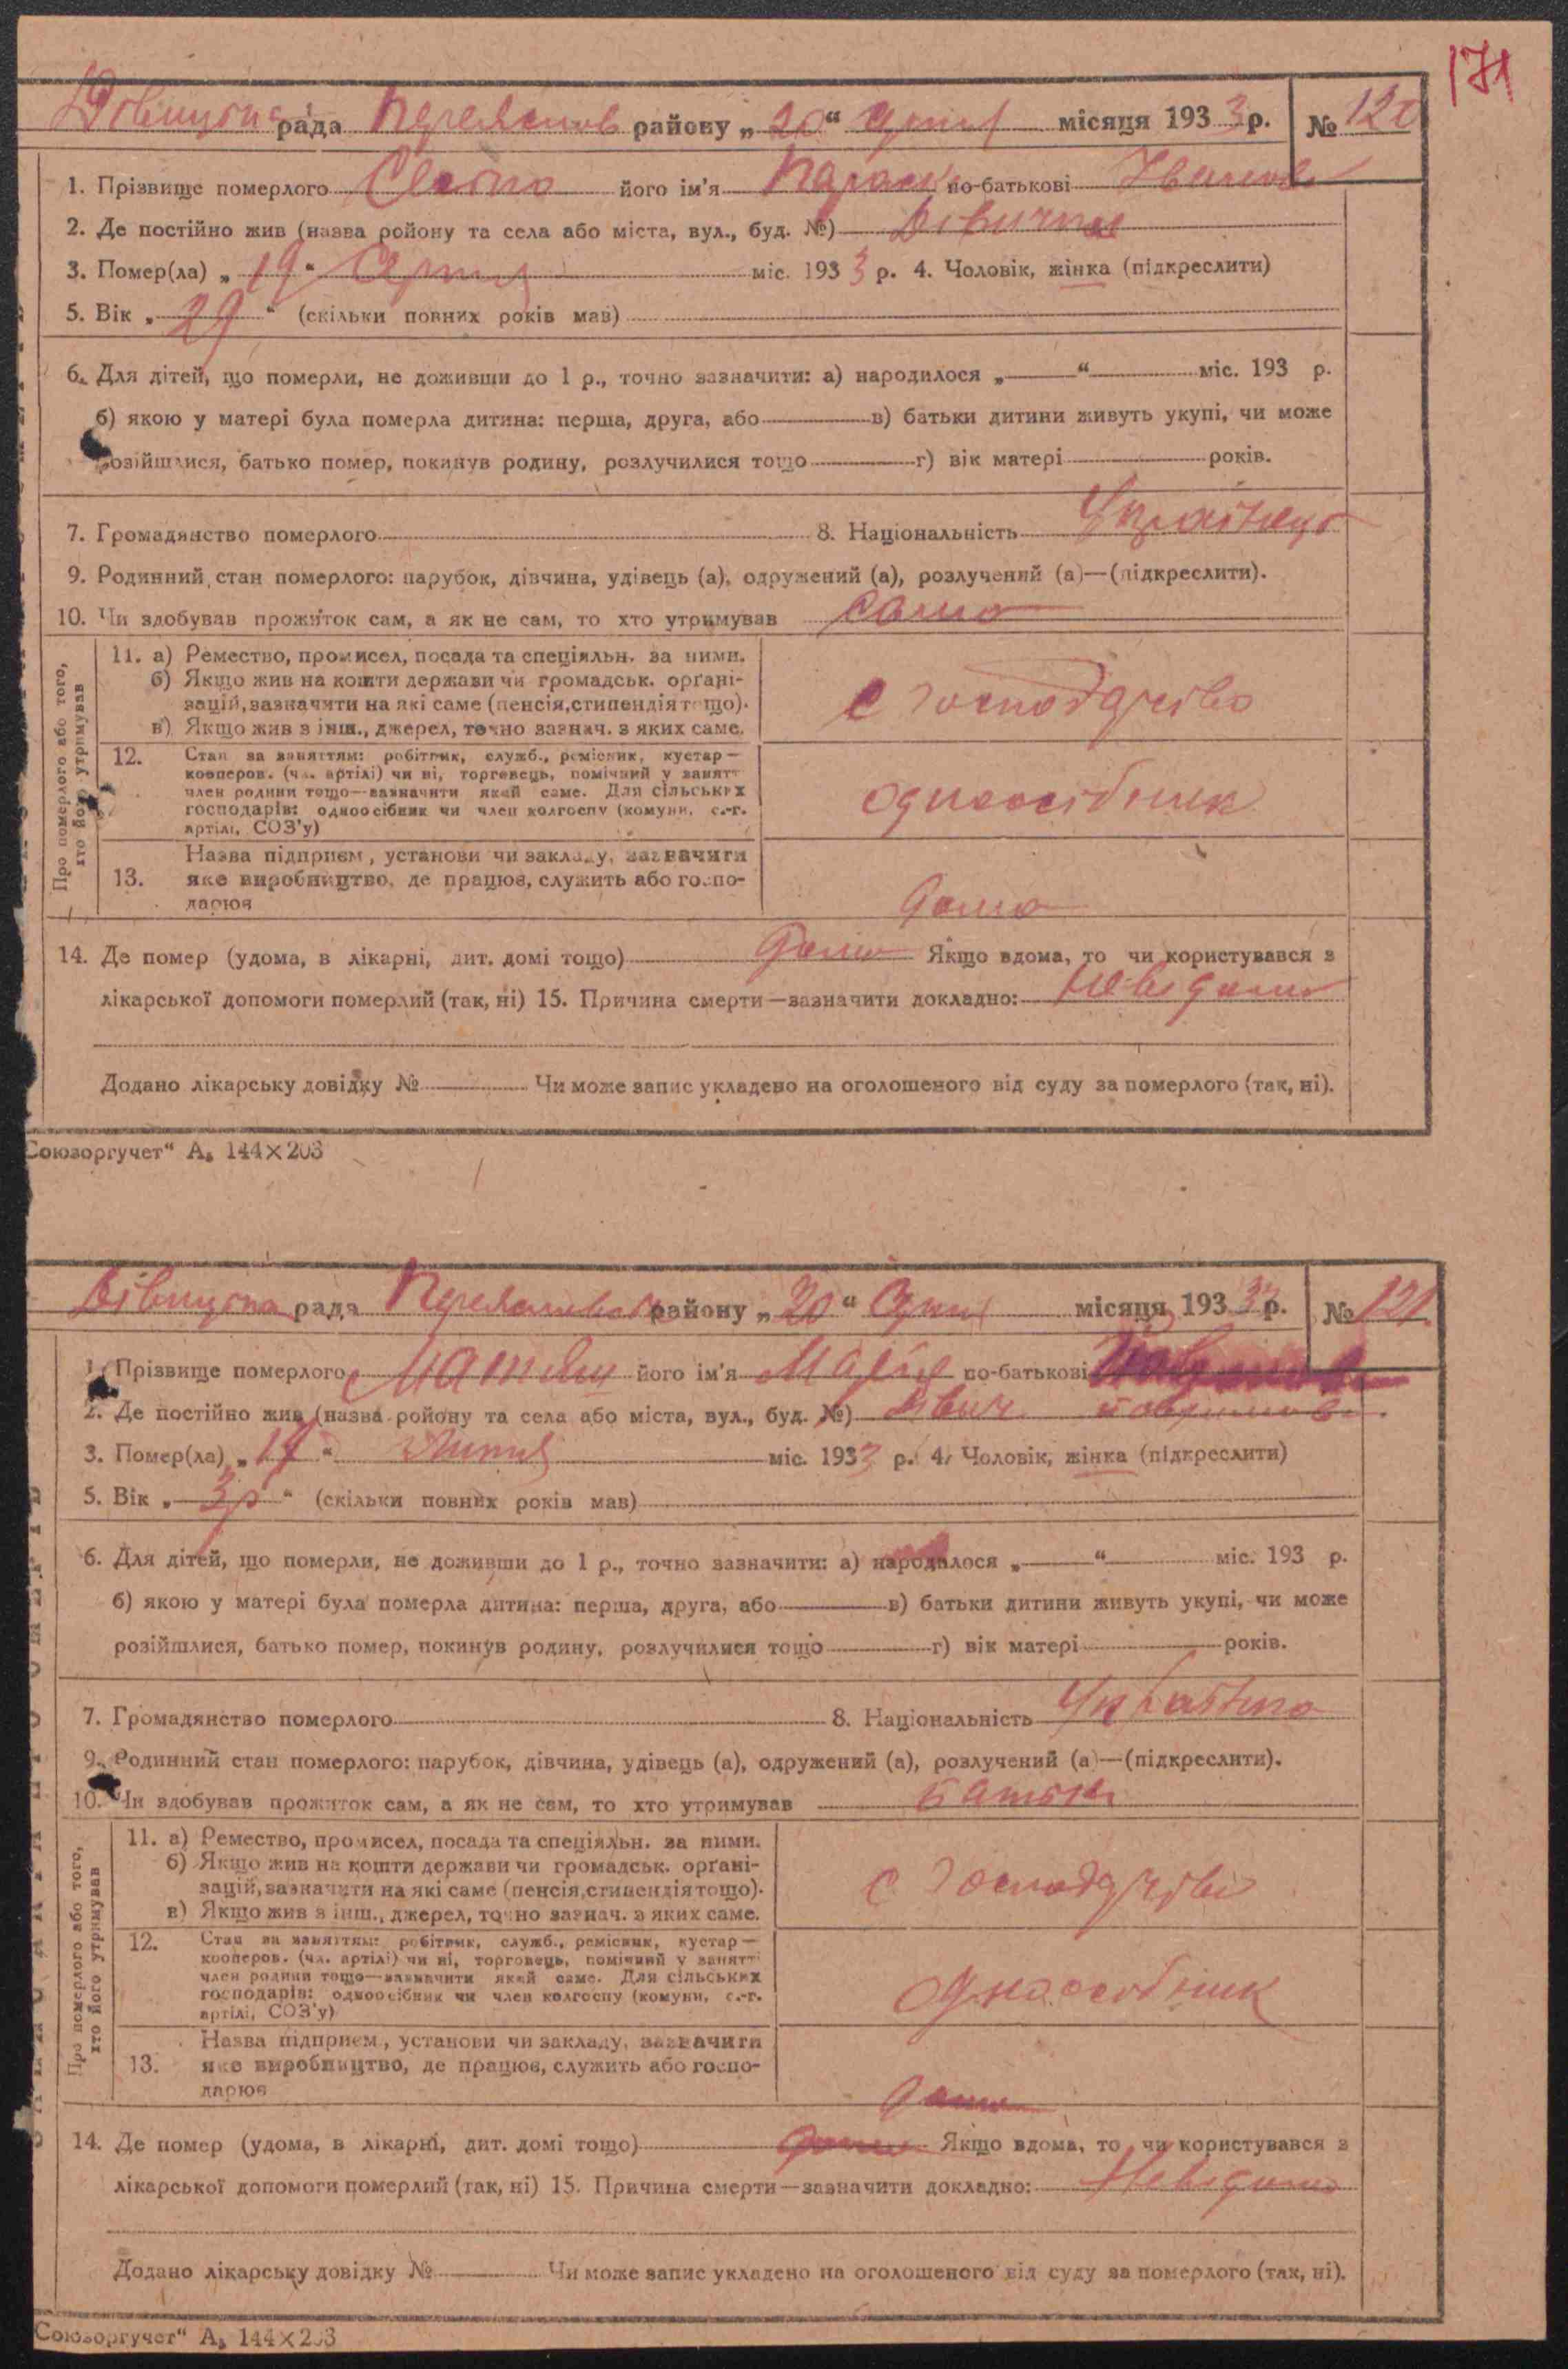 171
рада район у „ 20 “ місяця 193 3 р. № 120
1. Прізвище померлого його ім'я Параск по-батькові Іванов
2. Де постійно жив (назва ройону та села або міста, вул., буд. №) Дівички
3. Помер(ла) „ 19 “ Серпня міс. 193 3 р. 4. Чоловік, жінка (підкреслити)
5. Вік „ 29 “ (скільки повних років мав)
6. Для дітей, що померли, не доживши до 1 р., точно зазначити: а) народилося „ “ міс. 193 р.
б) якою у матері була померла дитина: перша, друга, або в) батьки дитини живуть укупі, чи може
розійшлися, батько помер, покинув родину, розлучилися тощо г) вік матері років.
7. Громадянство померлого 8. Національність
9. Родинний стан померлого: парубок, дівчина, удівець (а), одружений (а), розлучений (а)—(підкреслити).
10. Чи здобував прожиток сам, а як не сам, то хто утримував сама
Про померлого або того,
хто його утримував
11. а) Ремество, промисел, посада та спеціяльн. за ними.
б) Якщо жив на кошти держави чи громадськ. орґані-
зацій, зазначити на які саме (пенсія, стипендія тощо).
в) Якщо жив з інш., джерел, точно зазнач. з яких саме.
с господарство
12. Стан за заняттям: робітник, служб., ремісник, кустар—
кооперов. (чл. артілі) чи ні, торговець, помічний у занятт
член родини тощо—зазначити який саме. Для сільських
господарів: одноосібник чи член колгоспу (комуни, с.-г.
артілі, СОЗ'у)
одноосібник
13. Назва підприєм, установи чи закладу, зазначити
яке виробництво, де працює, служить або госпо-
дарює
дома
14. Де помер (удома, в лікарні, дит. домі тощо) дома Якщо вдома, то чи користувався з
лікарської допомоги померлий (так, ні) 15. Причина смерти—зазначити докладно: невідома
Додано лікарську довідку № Чи може запис укладено на оголошеного від суду за померлого (так, ні).
Союзоргучет“ А₅ 144×203
рада району „ 20 “ місяця 193 3 р. № 121
1. Прізвище померлого його ім'я Марія по-батькові
2. Де постійно жив (назва ройону та села або міста, вул., буд. №) Дівич
3. Помер(ла) „ “ Липня міс. 193 3 р. 4. Чоловік, жінка (підкреслити)
5. Вік „ 3 р “ (скільки повних років мав)
6. Для дітей, що померли, не доживши до 1 р., точно зазначити: а) народилося „ “ міс. 193 р.
б) якою у матері була померла дитина: перша, друга, або в) батьки дитини живуть укупі, чи може
розійшлися, батько помер, покинув родину, розлучилися тощо г) вік матері років.
7. Громадянство померлого 8. Національність
9. Родинний стан померлого: парубок, дівчина, удівець (а), одружений (а), розлучений (а)—(підкреслити).
10. Чи здобував прожиток сам, а як не сам, то хто утримував батьки
Про померлого або того,
хто його утримував
11. а) Ремество, промисел, посада та спеціяльн. за ними.
б) Якщо жив на кошти держави чи громадськ. орґані-
зацій, зазначити на які саме (пенсія, стипендія тощо).
в) Якщо жив з інш., джерел, точно зазнач. з яких саме.
с господарство
12. Стан за заняттям: робітник, служб., ремісник, кустар—
кооперов. (чл. артілі) чи ні, торговець, помічний у занятті
член родини тощо—зазначити який саме. Для сільських
господарів: одноосібник чи член колгоспу (комуни, с.-г.
артілі, СОЗ'у)
одноосібник
13. Назва підприєм, установи чи закладу, зазначити
яке виробництво, де працює, служить або госпо-
дарює
дома
14. Де помер (удома, в лікарні, дит. домі тощо) дома Якщо вдома, то чи користувався з
лікарської допомоги померлий (так, ні) 15. Причина смерти—зазначити докладно: невідома
Додано лікарську довідку № Чи може запис укладено на оголошеного від суду за померлого (так, ні).
Союзоргучет“ А₅ 144×203